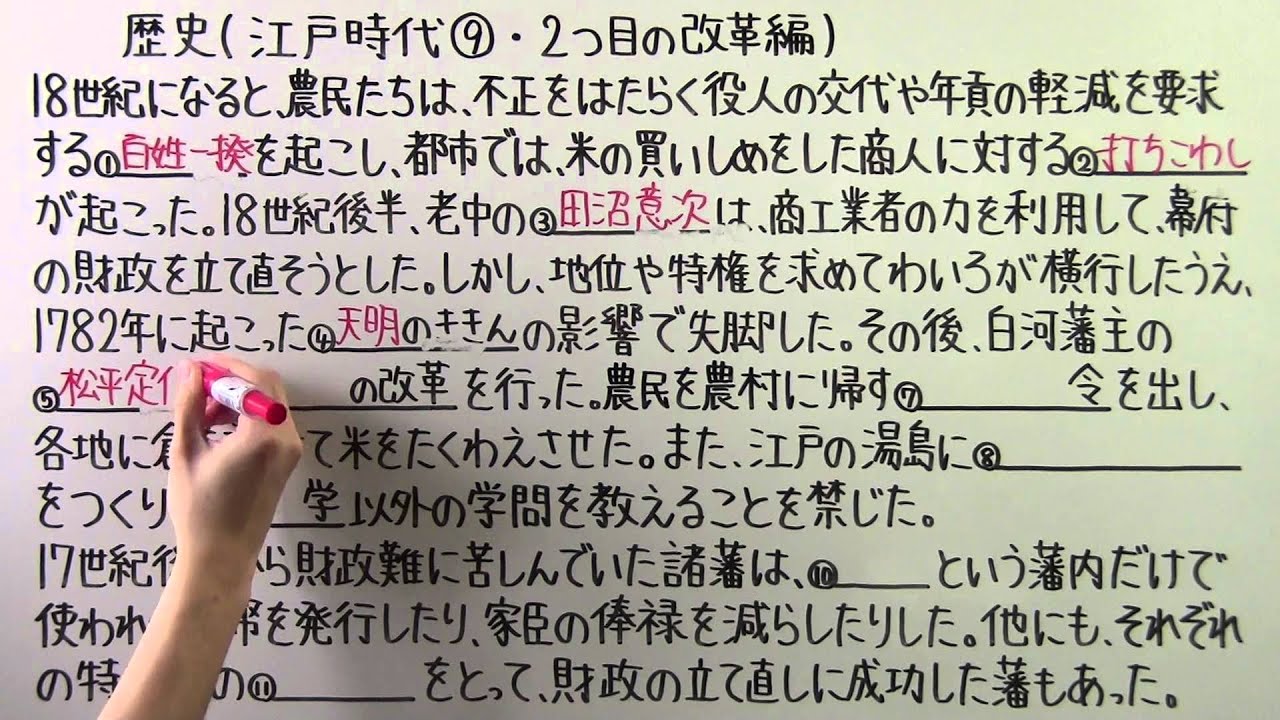 歴史(江戸時代⑨・2つ目の改革編)
18世紀になると、農民たちは、不正をはたらく役人の交代や年貢の軽減を要求
する①百姓一揆を起こし、都市では、米の買いしめをした商人に対する②打ちこわし
が起こった。18世紀後半、老中の③田沼意次は、商工業者の力を利用して、幕府
の財政を立て直そうとした。しかし、地位や特権を求めてわいろが横行したうえ、
1782年に起こった④天明のききんの影響で失脚した。その後、白河藩主の
⑤松平定 の改革を行った。農民を農村に帰す⑦ 令を出し、
各地に倉 て米をたくわえさせた。また、江戸の湯島に⑧
をつくり 学以外の学問を教えることを禁じた。
17世紀後 から財政難に苦しんでいた諸藩は、⑩ という藩内だけで
使われ 幣を発行したり、家臣の俸禄を減らしたりした。他にも、それぞれ
の特 の⑪ をとって、財政の立て直しに成功した藩もあった。